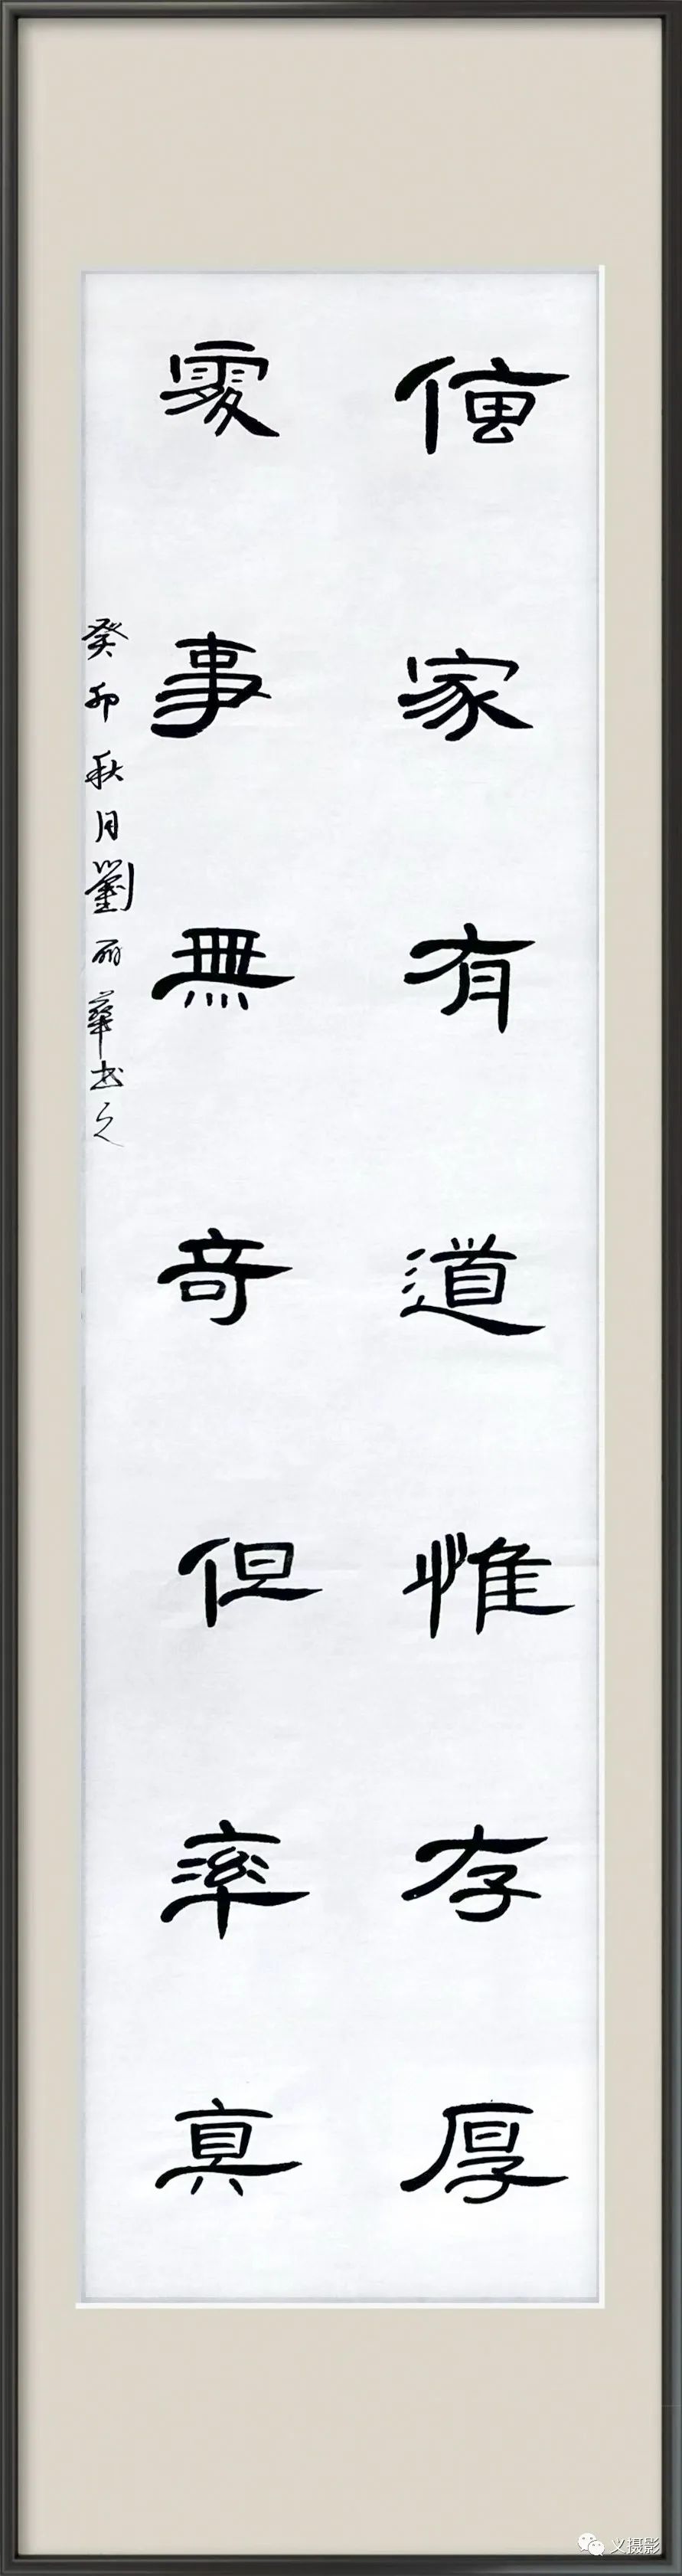 傳家有道惟存厚
處事無奇但率真
癸卯秋月劉丽華书之
义摄影